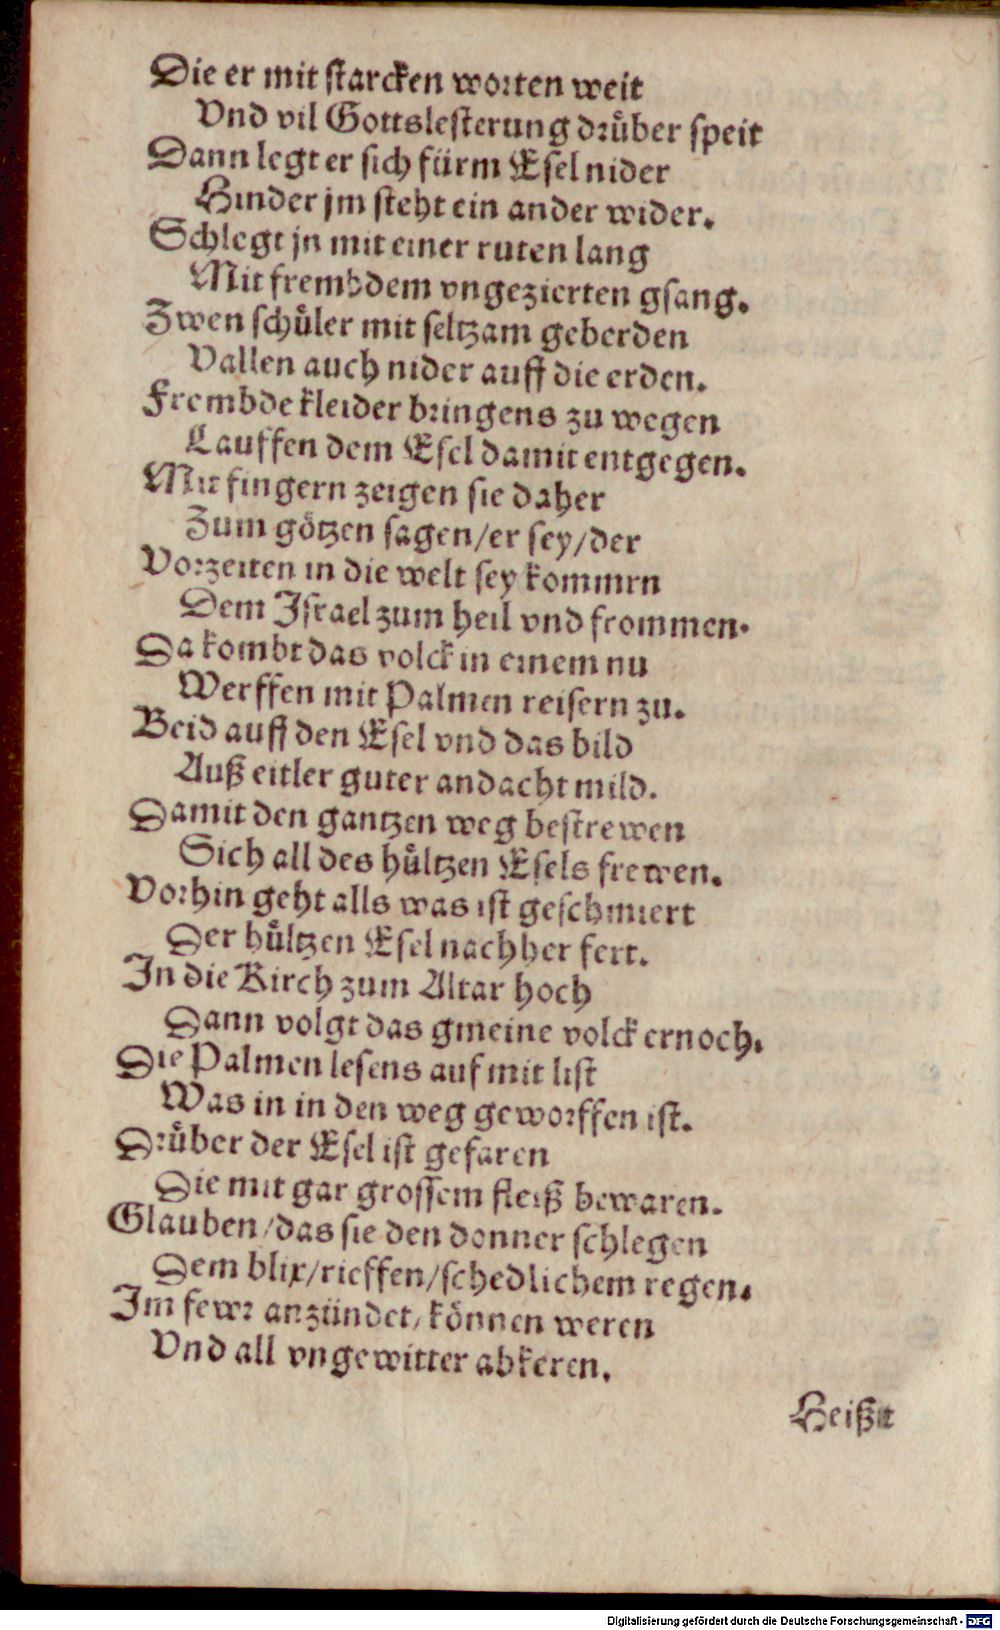 Die er mit starcken worten weit
Vnd vil Gottslesterung drüber speit
Dann legt er sich fürm Esel nider
Hinder jm steht ein ander wider.
Schlegt jn mit einer ruten lang
Mit frembdem vngezierten gsang.
Zwen schüler mit seltzam geberden
Vallen auch nider auff die erden.
Frembde kleider bringens zu wegen
Lauffen dem Esel damit entgegen.
Mit fingern zeigen sie daher
Zum götzen sagen/er sey/der
Vorzeiten in die welt sey kommrn
Dem Israel zum heil vnd frommen.
Da kombt das volck in einem nu
Werffen mit Palmen reisern zu.
Beid auff den Esel vnd das bild
Auß eitler guter andacht mild.
Damit den gantzen weg bestrewen
Sich all des hültzen Esels frewen.
Vorhin geht alls was ist geschmiert
Der hültzen Esel nachher fert.
In die Kirch zum Altar hoch
Dann volgt das gmeine volck ernoch.
Die Palmen lesens auf mit list
Was in in den weg geworffen ist.
Drüber der Esel ist gefaren
Die mit gar grossem fleiß bewaren.
Glauben/das sie den donner schlegen
Dem blix/rieffen/schedlichem regen.
Im fewr anzündet/können weren
Vnd all vngewitter abkeren.
Heißit
Digitalisierung gefördert durch die Deutsche Forschungsgemeinschaft - DFG